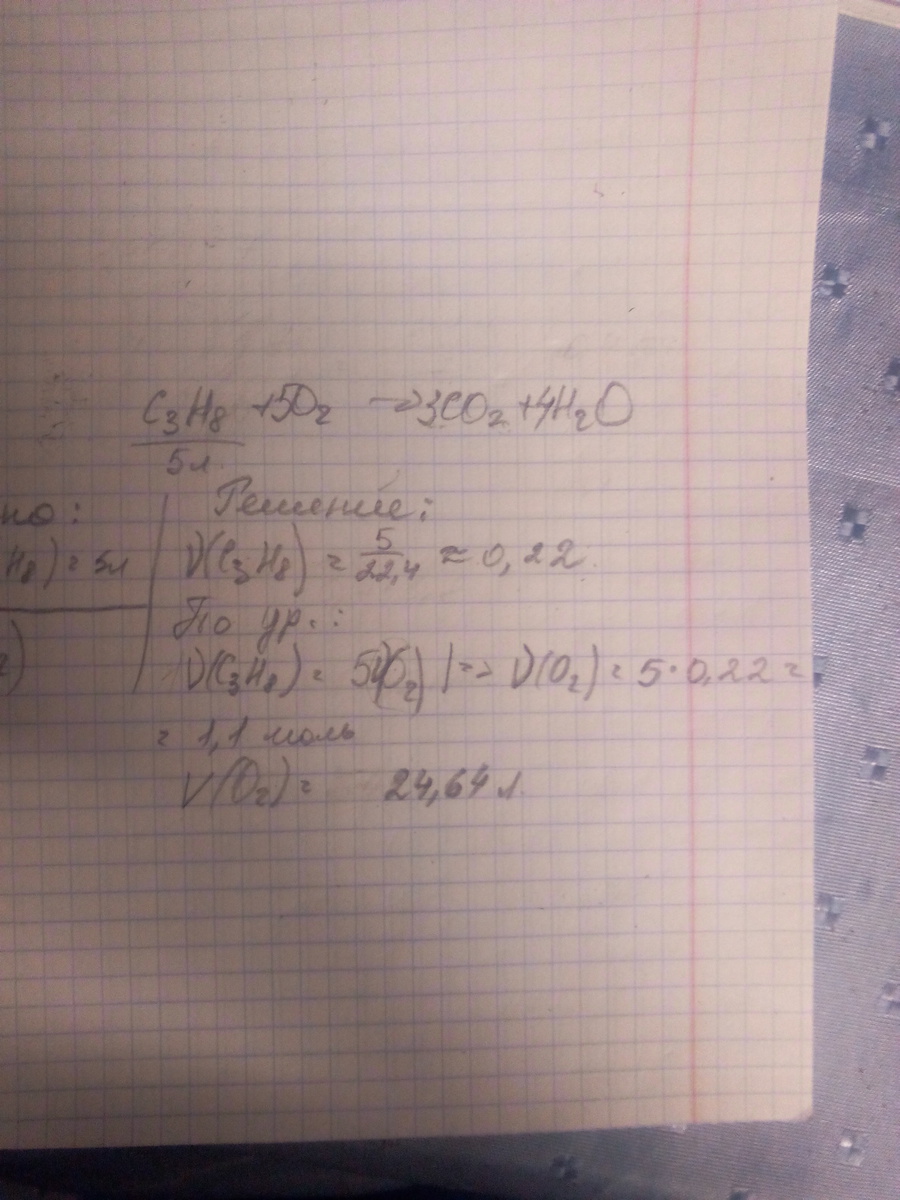 C₃H₈ + 5O₂ → 3CO₂ + 4H₂O
5л
но: Решение:
H₈) = 5л ν(C₃H₈) = 5/22,4 ≈ 0,22
По ур.:
ν(C₃H₈) = 5ν(O₂) |=> ν(O₂) = 5·0,22 =
= 1,1 моль
V(O₂) = 24,64 л.